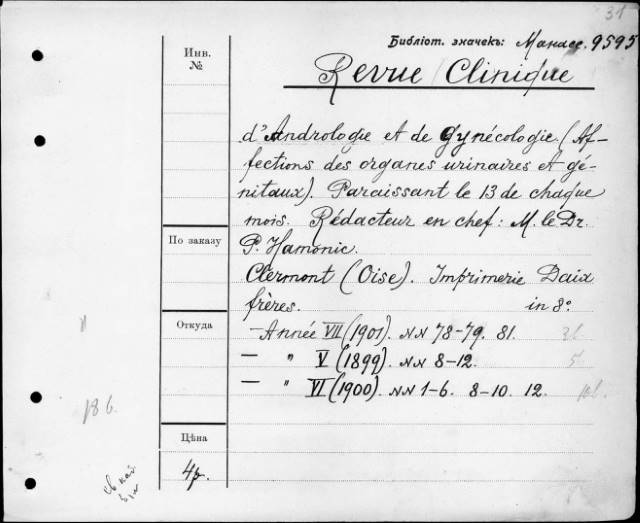 31
Библіот. значекъ: Манасс. 9595
Инв.
№
Revue Clinique
d'Andrologie et de Gynécologie. (Af-
fections des organes urinaires et gé-
nitaux). Paraissant le 13 de chaque
mois. Rédacteur en chef: M. le Dr.
По заказу
P. Hamonic.
Clermont (Oise). Imprimerie Daix
frères. in 8º.
Откуда
— Année VII (1901). NN 78-79. 81. 3b.
— " V (1899). NN 8-12. 5
— " VI (1900). NN 1-6. 8-10. 12. 10b.
18 b.
Цѣна
4р.